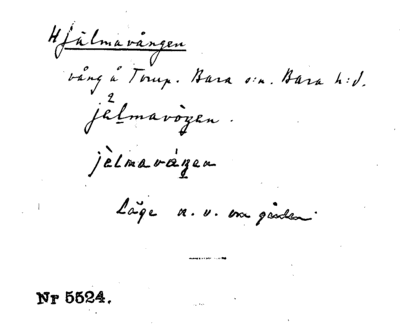 Hjälmavången
vång å Torup. Bara s:n. Bara h:d.
jèlmavòŋen.
jèlmavåŋen
Läge n. v. om gården
Nr 5524.